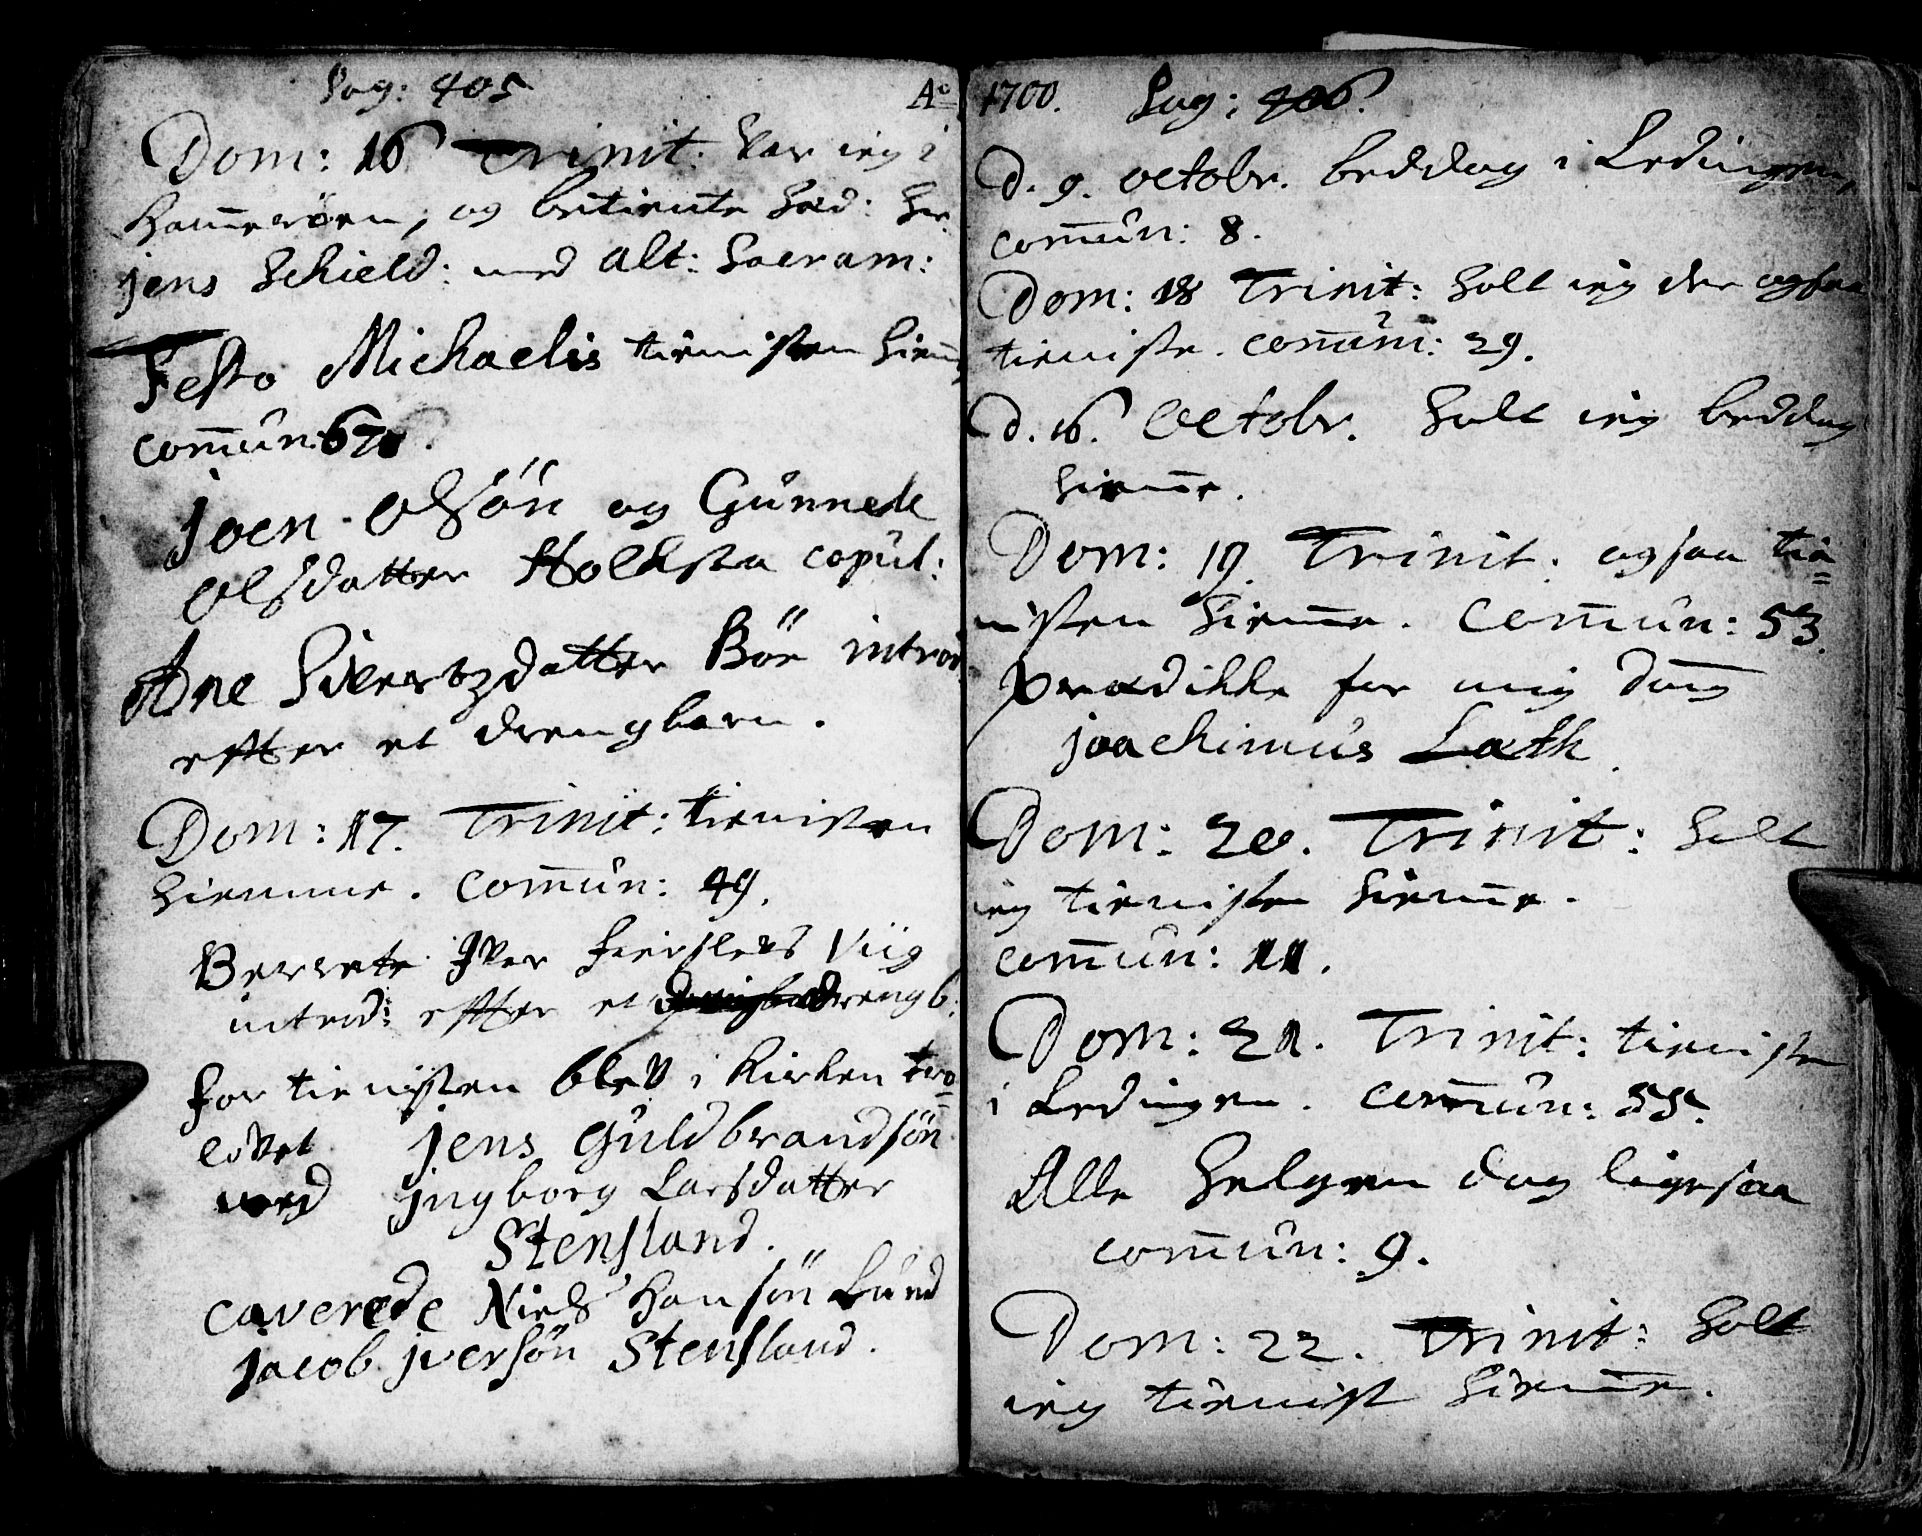 Pag: 405
Dom: 16 Trinit: var ieg i
Ham̄erøen, og betiente Hæd: Hr.
jens Schield: med alt: Sacram:
Festo Michaelis tienisten hiem̄
com̄un: 676.
joen Olsön og Gunnele
Olsdatter Holdsta copul:
Ane Sivertzdatter Böe introd
effter et drengbarn.
Dom: 17. Trinit: tienisten
hiemme. com̄un: 49.
Berrete Iver Viig
introd: effter et drengb:
for tienisten blev i Kirken tro=
lovet jens Guldbrandsön
med jngborg Larsdatter
Stensland.
caverede Niels Hansön Lund
jacob jversön Stensland.
Ao 1700. Pag: 406.
d. 9. octobr. beddag i Ledingen,
com̄un: 8.
Dom: 18 Trinit: holt ieg der ogsaa
tieniste. com̄un: 29.
d. 16. Octobr. holt ieg beddag
hiem̄e.
Dom: 19. Trinit. ogsaa tie=
nisten hiem̄e. com̄un: 53.
prædikke for mig Dn̄s
joachimus Lath.
Dom: 20. Trinit: holt
ieg tienisten hiem̄e.
com̄un: 11.
Dom: 21. Trinit: tienisten
i Ledingen. com̄un: 55.
Alle Helgen dag ligesaa
com̄un: 9.
Dom: 22. Trinit: holt
ieg tienist hiem̄e.